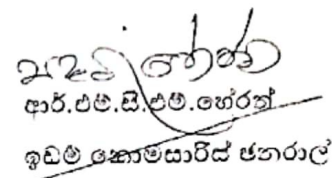 ආර්.එම්.සී.එම්.හේරත්
ඉඩම් කොමසාරිස් ජනරාල්